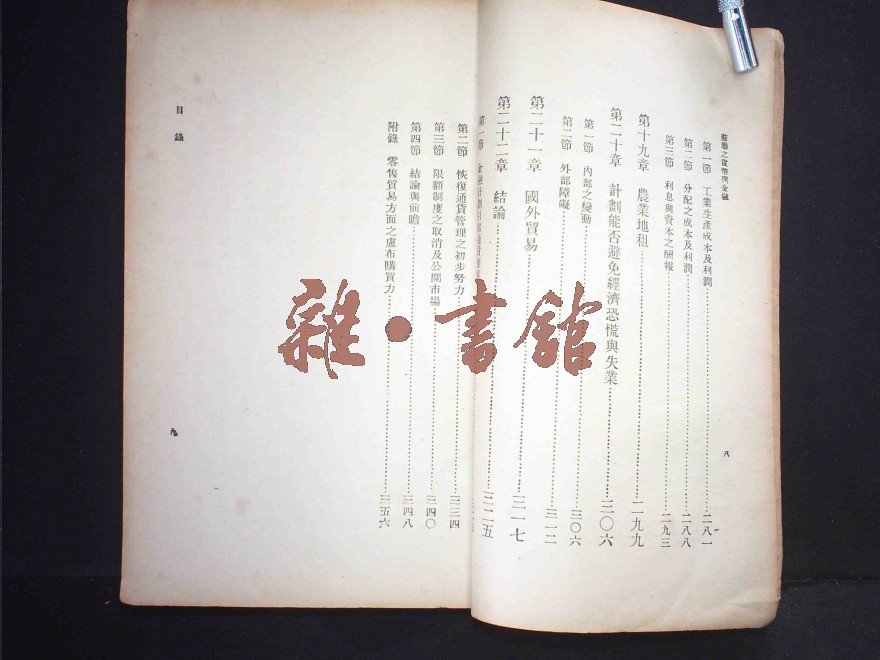 蘇聯之貨幣與金融
八
第一節 工業生產成本及利潤……二八一
第二節 分配之成本及利潤……二八八
第三節 利息與資本之酬報……二九三
第十九章 農業地租……二九九
第二十章 計劃能否避免經濟恐慌與失業……三〇六
第一節 內部之變動……三〇六
第二節 外部障礙……三一二
第二十一章 國外貿易……三一七
第二十二章 結論……三二五
第一節 金融計劃
第二節 恢復通貨管理之初步努力……三三四
第三節 限額制度之取消及公開市場……三四〇
第四節 結論與前瞻……三四八
附錄 零售貿易方面之盧布購買力……三五六
目錄
九
雜·書館